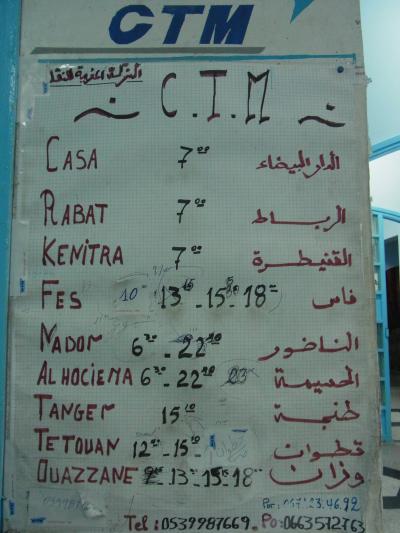 CTM
الشركة المغربية للنقل
C.T.M
CASA 7 00 الدار البيضاء
RABAT 7 00 الرباط
KENITRA 7 00 القنيطرة
FES 10 13 15 - 15 - 18 فاس
NADOR 6 30 - 22 الناضور
ALHOCIEMA 6 30 - 22 23 الحسيمة
TANGER 15 طنجة
TETOUAN 12 - 15 تطوان
OUAZZANE 13 - 15 - 18 وزان
Tel : 0539987669 - Po: 0663572763